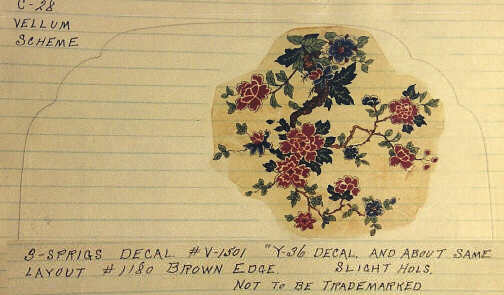 C-28
VELLUM
SCHEME
3-SPRIGS DECAL #V-1501 "Y-36 DECAL. AND ABOUT SAME
LAYOUT #1180 BROWN EDGE. SLIGHT HOLS.
NOT TO BE TRADEMARKED